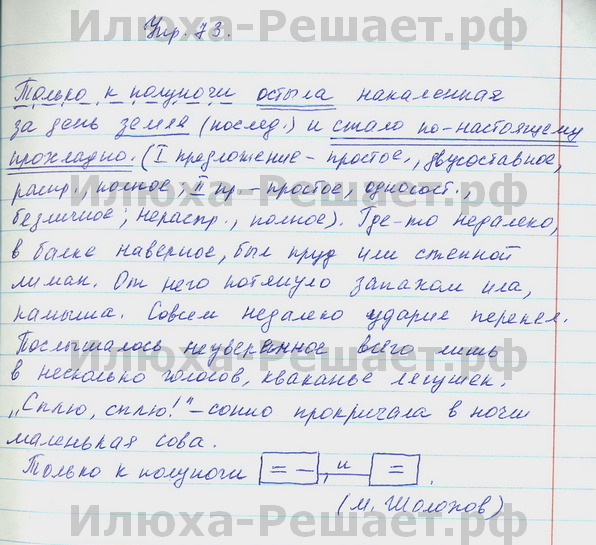 Илюха-Решает.рф
Упр. 73.
Только к полуночи остыла накаленная
за день земля (послед.) и стало по-настоящему
прохладно. (I предложение - простое, двусоставное,
распр., полное, II пр. - простое, односост.,
безличное; нераспр., полное). Где-то недалеко,
в балке наверное, был пруд или степной
лиман. От него потянуло запахом ила,
камыша. Совсем недалеко ударил перепел.
Послышалось неуверенное всего лишь
в несколько голосов, кваканье лягушек.
„Сплю, сплю!" - сонно прокричала в ночи
маленькая сова.
Только к полуночи [= -], и [=].
(М. Шолохов)
Илюха-Решает.рф
Илюха-Решает.рф
Илюха-Решает.рф